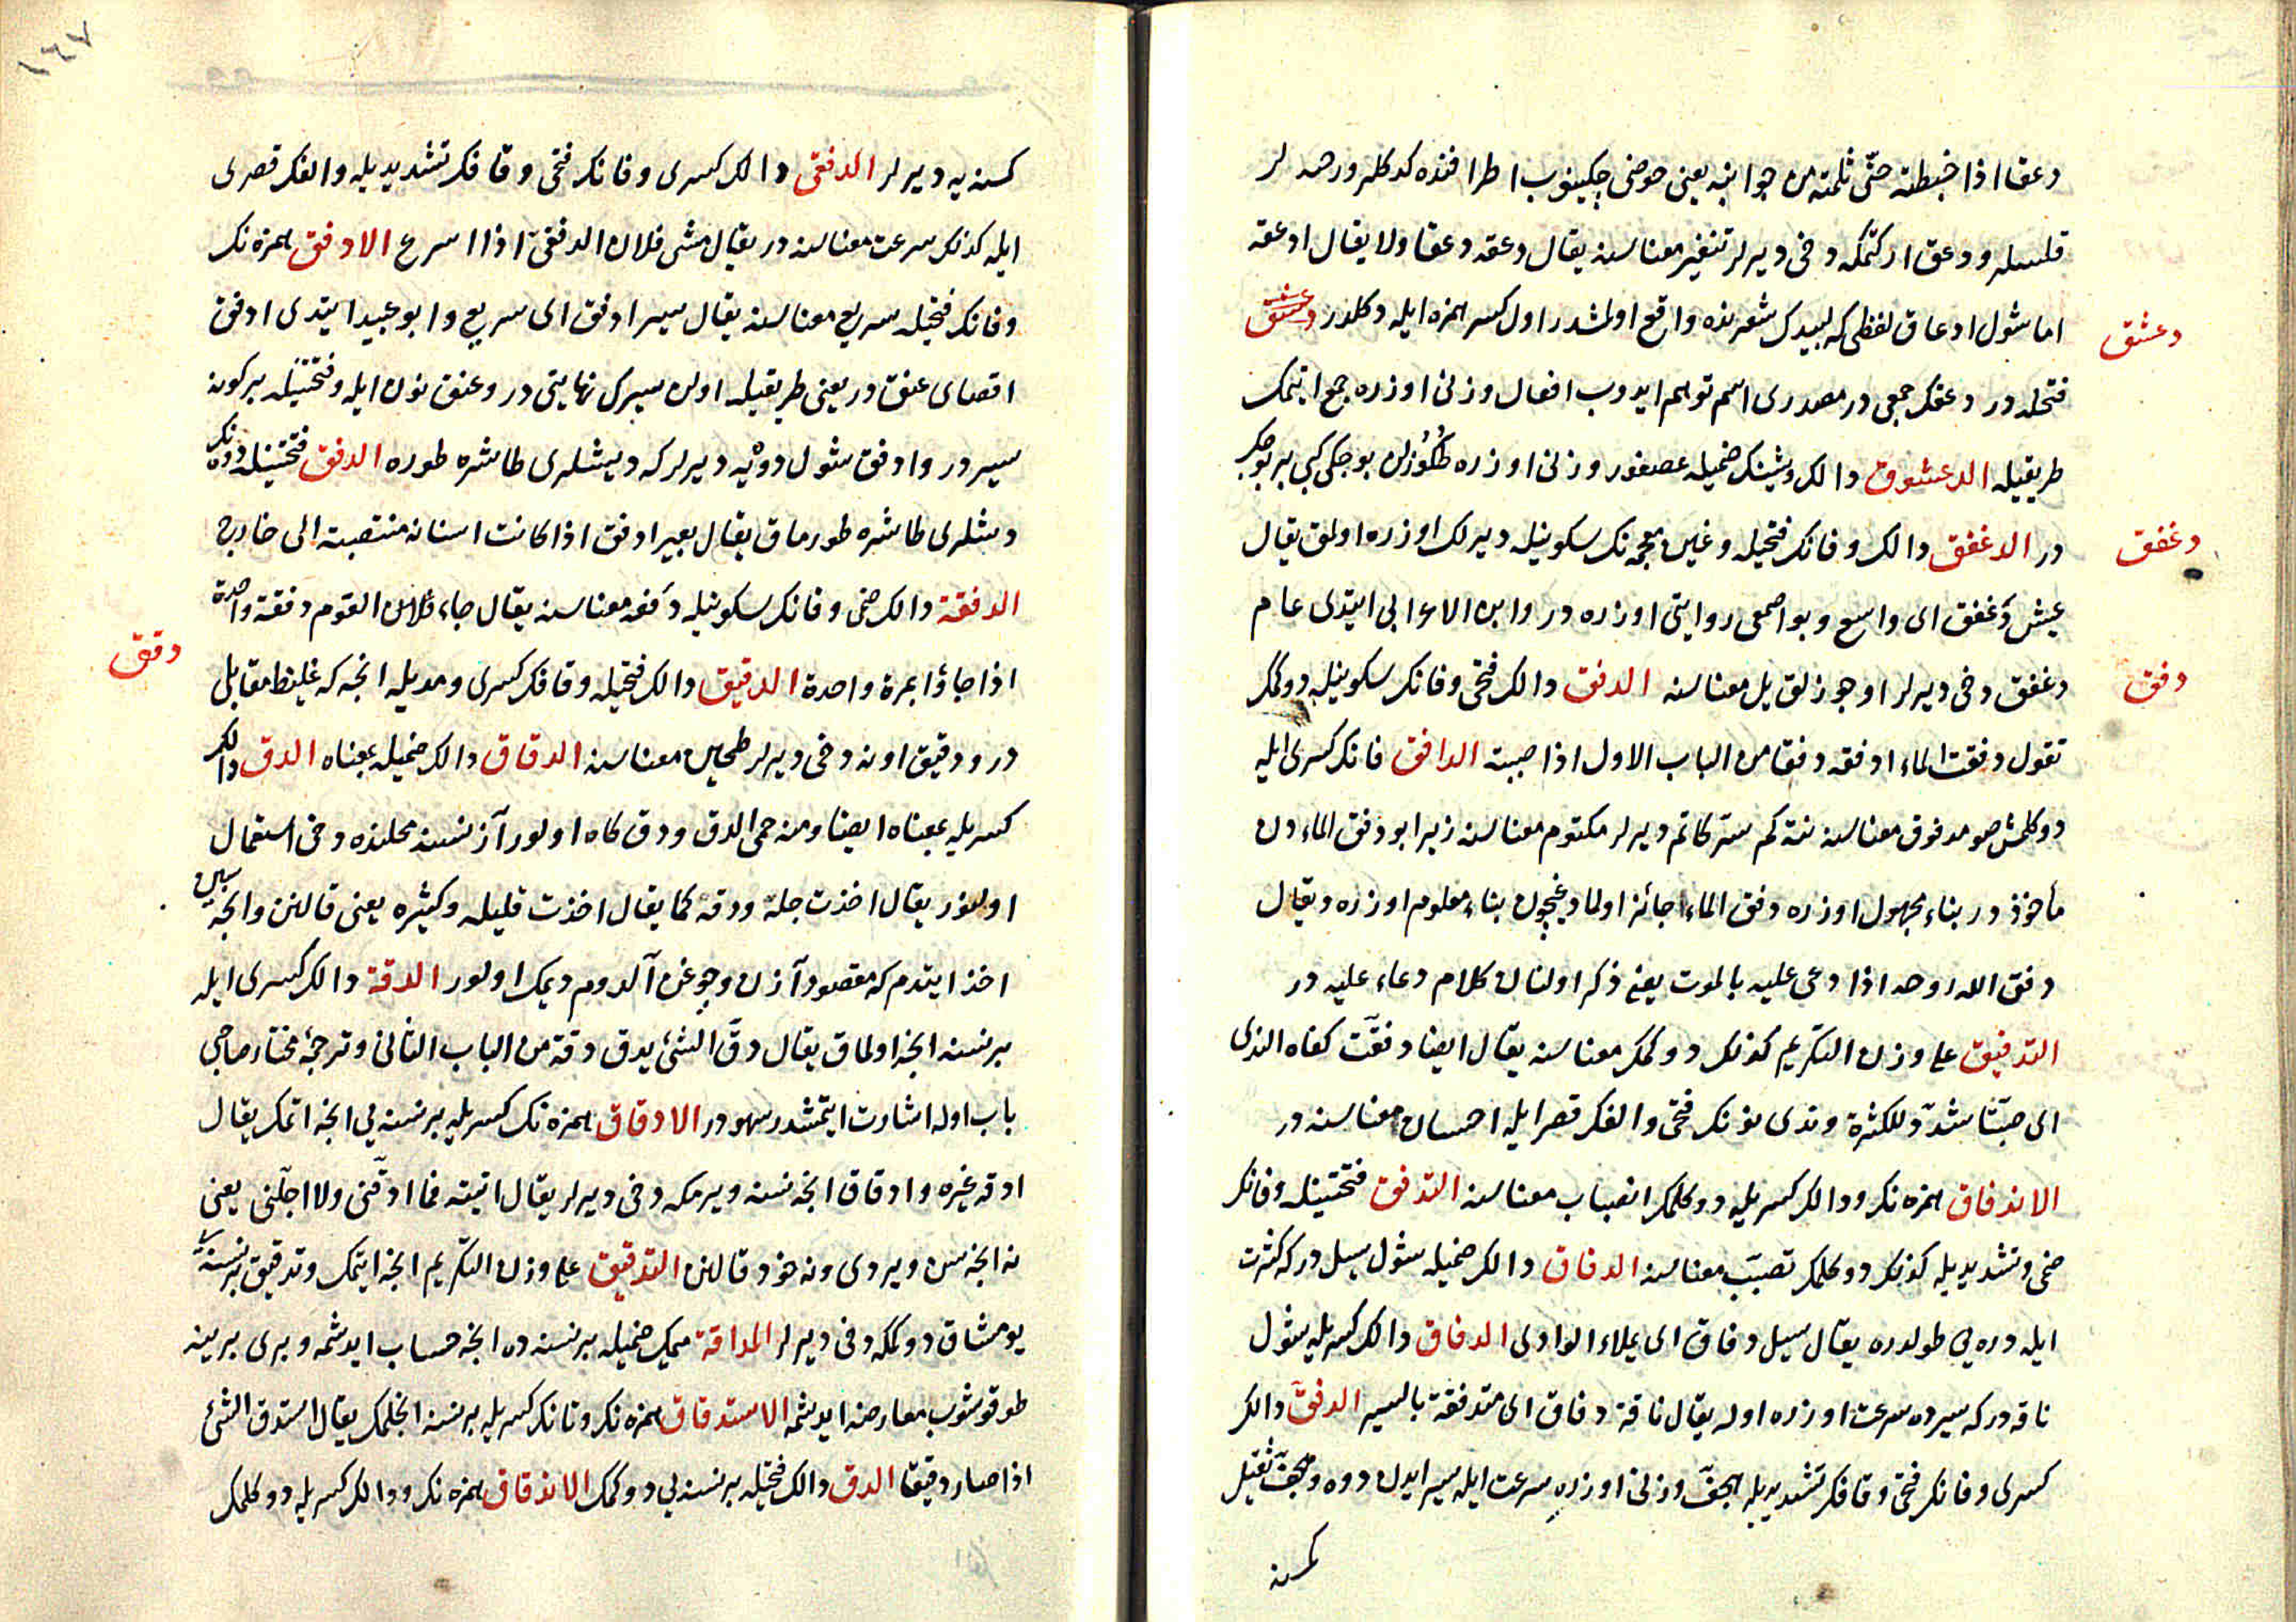 دعقا اذا خبطته حتّى ثلمته من جوانبه يعنى حوضى چكينوب اطرافنده كدكلر ورصه لر
قلسه لر ودعق اركتمكه دخى ديرلر تنفير معناسنه يقال دعقه دعقا ولا يقال ادعقه
دعشق
اما شول ادعاق لفظى كه لبيدك شعرنده واقع اولمشدر اول كسر همزه ايله دكلدر
فتحله در دعقك جمعى در مصدرى اسم توهم ايدوب افعال وزنى اوزره جمع ايتمك
طريقيله الدعشوق دالك وشينك ضميله عصفور وزنى اوزره طكوزلن بوجكى كبى بر بوجك
دغفق
در الدغفق دالك وفانك فتحيله وغين معجمه نك سكونيله ديرلك اوزره اولمق يقال
عيش دغفق اى واسع وبو اصمعى روايتى اوزره در وابن الاعرابى ايتدى عام
دفق
دغفق دخى ديرلر اوجوزلق يل معناسنه الدفق دالك فتحى وفانك سكونيله دوكمك
تقول دفقت الماء ادفقه دفقا من الباب الاول اذا صببته الدافق فانك كسرى ايله
دوكلمش صو مدفوق معناسنه نته كم سر كاتم ديرلر مكتوم معناسنه زيرا بو دفق الماء دن
مأخوذ در بناء مجهول اوزره دفق الماء جائز اولماديغيچون بناء معلوم اوزره ويقال
دفق الله روحه اذا دعى عليه بالموت يعنى ذكر اولنان كلام دعاء عليه در
التدفيق على وزن التكريم كذلك دوكمك معناسنه يقال ايضا دفقت كفاه الندى
اى صبّتا شدّد للكثرة وندى نونك فتحى والفك قصر ايله احسان معناسنه در
الاندفاق همزه نك ودالك كسريله دوكلمك انصباب معناسنه التدفق فتحتينله وفانك
ضمى وتشديديله كذلك دوكلمك تصبّب معناسنه الدفاق دالك ضميله شول سيل در كه كثرت
ايله دره يى طولدره يقال سيل دفاق اى يملاء الوادى الدفاق دالك كسريله شول
ناقه در كه سيرده سرعت اوزره اوله يقال ناقة دفاق اى متدفقة بالسير الدفق دالك
كسرى وفانك فتحى وقافك تشديديله هجف وزنى اوزره سرعت ايله سير ايدن دوه وهجف ثقيل
كسنه
١٦٧
كسنه يه ديرلر الدفقى دالك كسرى وفانك فتحى وقافك تشديديله والفك قصرى
ايله كذلك سرعت معناسنه در يقال مشى فلان الدفقى اذا اسرع الادفق همزه نك
وفانك فتحيله سريع معناسنه يقال سير ادفق اى سريع وابو عبيدا ايتدى ادفق
اقصاى عنق در يعنى طريقيله اولن سيرك نهايتى در وعنق نون ايله وفتحتينله بر كونه
سير در وادفق شول دوه يه ديرلر كه ديشلرى طاشره طوره الدفق فتحتينله دوه نك
ديشلرى طاشره طورماق يقال بعير ادفق اذا كانت اسنانه منتصبة الى خارج
الدفقة دالك ضمى وفانك سكونيله دفعه معناسنه يقال جاء القوم دفقة واحدة
دقق
اذا جاؤا بمرة واحدة الدقيق دالك فتحيله وقافك كسرى ومديله انجه كه غليظ مقابلى
در ودقيق اونه دخى ديرلر طحين معناسنه الدقاق دالك ضميله بمعناه الدق دالك
كسريله بمعناه ايضا ومنه حمى الدق ودق كاه اولور آز نسنه محلنده دخى استعمال
اولنور يقال اخذت جله ودقه كما يقال اخذت قليله وكثيره يعنى قالنن وانجه سين
اخذ ايتدم كه مقصود آزن وچوغن آلدوم ديمك اولور الدقة دالك كسرى ايله
بر نسنه انجه اولماق يقال دقّ الشئ يدق دقة من الباب الثانى وترجمه مختار صاحبى
باب اوله اشارت ايتمشدر سهودر الادقاق همزه نك كسريله بر نسنه يى انجه اتمك يقال
ادقه غيره وادقاق انجه نسنه ويرمكه دخى ديرلر يقال اتيته فما ادقّنى ولا اجلّنى يعنى
نه انجه سن ويردى ونه خود قالنن التدقيق على وزن التكريم انجه ايتمك وتدقيق بر نسنه يى
يومشاق دوكمكه دخى ديرلر المداقة ميمك ضميله بر نسنه ده انجه حساب ايدشمه وبرى برينه
طوقوشوب معارضه ايدشمه الاستدقاق همزه نك وتانك كسريله بر نسنه انجلمك يقال استدق الشئ
اذا صار دقيقا الدق دالك فتحيله بر نسنه يى دوكمك الاندقاق همزه نك ودالك كسريله دوكلمك